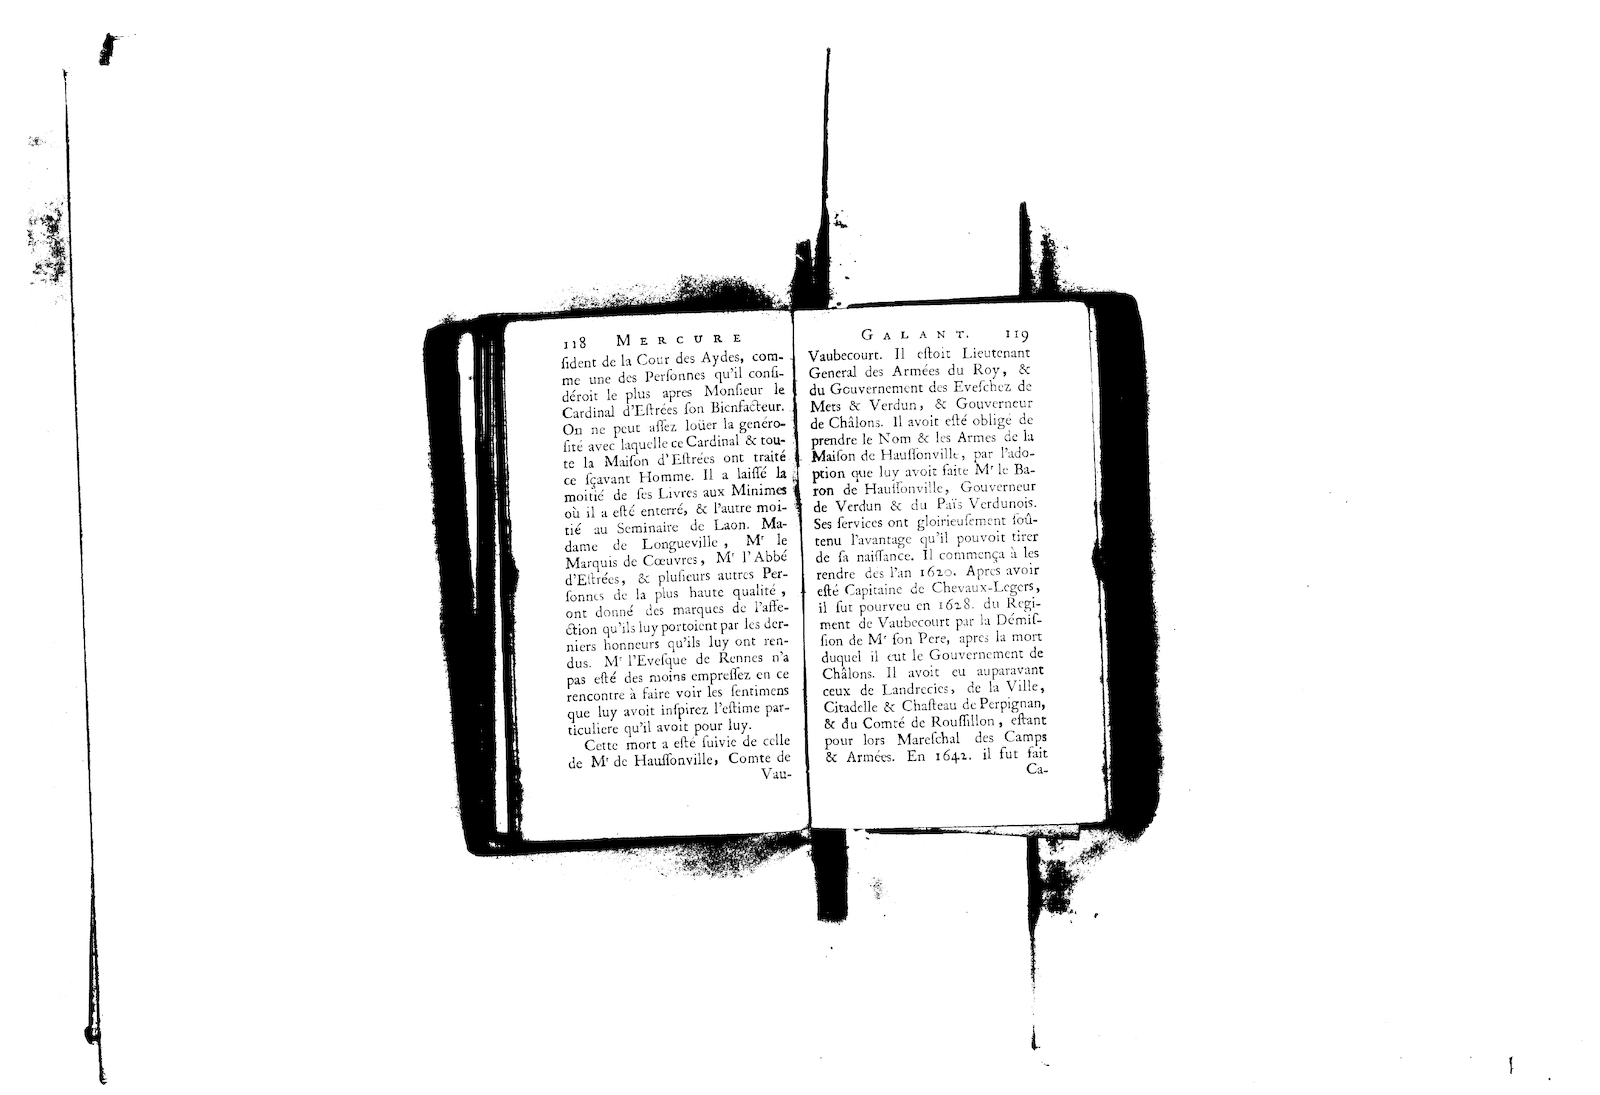 118 MERCURE
ſident de la Cour des Aydes, com-
me une des Perſonnes qu'il conſi-
déroit le plus apres Monſieur le
Cardinal d'Eſtrées ſon Bienfacteur.
On ne peut aſſez loüer la genéro-
ſité avec laquelle ce Cardinal & tou-
te la Maiſon d'Eſtrées ont traité
ce ſçavant Homme. Il a laiſſé la
moitié de ſes Livres aux Minimes
où il a eſté enterré, & l'autre moi-
tié au Seminaire de Laon. Ma-
dame de Longueville, Mr le
Marquis de Cœuvres, Mr l'Abbé
d'Eſtrées, & pluſieurs autres Per-
ſonnes de la plus haute qualité,
ont donné des marques de l'affe-
ction qu'ils luy portoient par les der-
niers honneurs qu'ils luy ont ren-
dus. Mr l'Eveſque de Rennes n'a
pas eſté des moins empreſſez en ce
rencontre à faire voir les ſentimens
que luy avoit inſpirez l'eſtime par-
ticuliere qu'il avoit pour luy.
Cette mort a eſté ſuivie de celle
de Mr de Hauſſonville, Comte de
Vau-
GALANT. 119
Vaubecourt. Il eſtoit Lieutenant
General des Armées du Roy, &
du Gouvernement des Eveſchez de
Mets & Verdun, & Gouverneur
de Châlons. Il avoit eſté obligé de
prendre le Nom & les Armes de la
Maiſon de Hauſſonville, par l'ado-
ption que luy avoit faite Mr le Ba-
ron de Hauſſonville, Gouverneur
de Verdun & du Païs Verdunois.
Ses ſervices ont gloirieuſement ſoû-
tenu l'avantage qu'il pouvoit tirer
de ſa naiſſance. Il commença à les
rendre dés l'an 1620. Apres avoir
eſté Capitaine de Chevaux-Legers,
il fut pourveu en 1628. du Regi-
ment de Vaubecourt par la Démiſ-
ſion de Mr ſon Pere, apres la mort
duquel il eut le Gouvernement de
Châlons. Il avoit eu auparavant
ceux de Landrecies, de la Ville,
Citadelle & Chaſteau de Perpignan,
& du Comté de Rouſſillon, eſtant
pour lors Mareſchal des Camps
& Armées. En 1642. il fut fait
Ca-